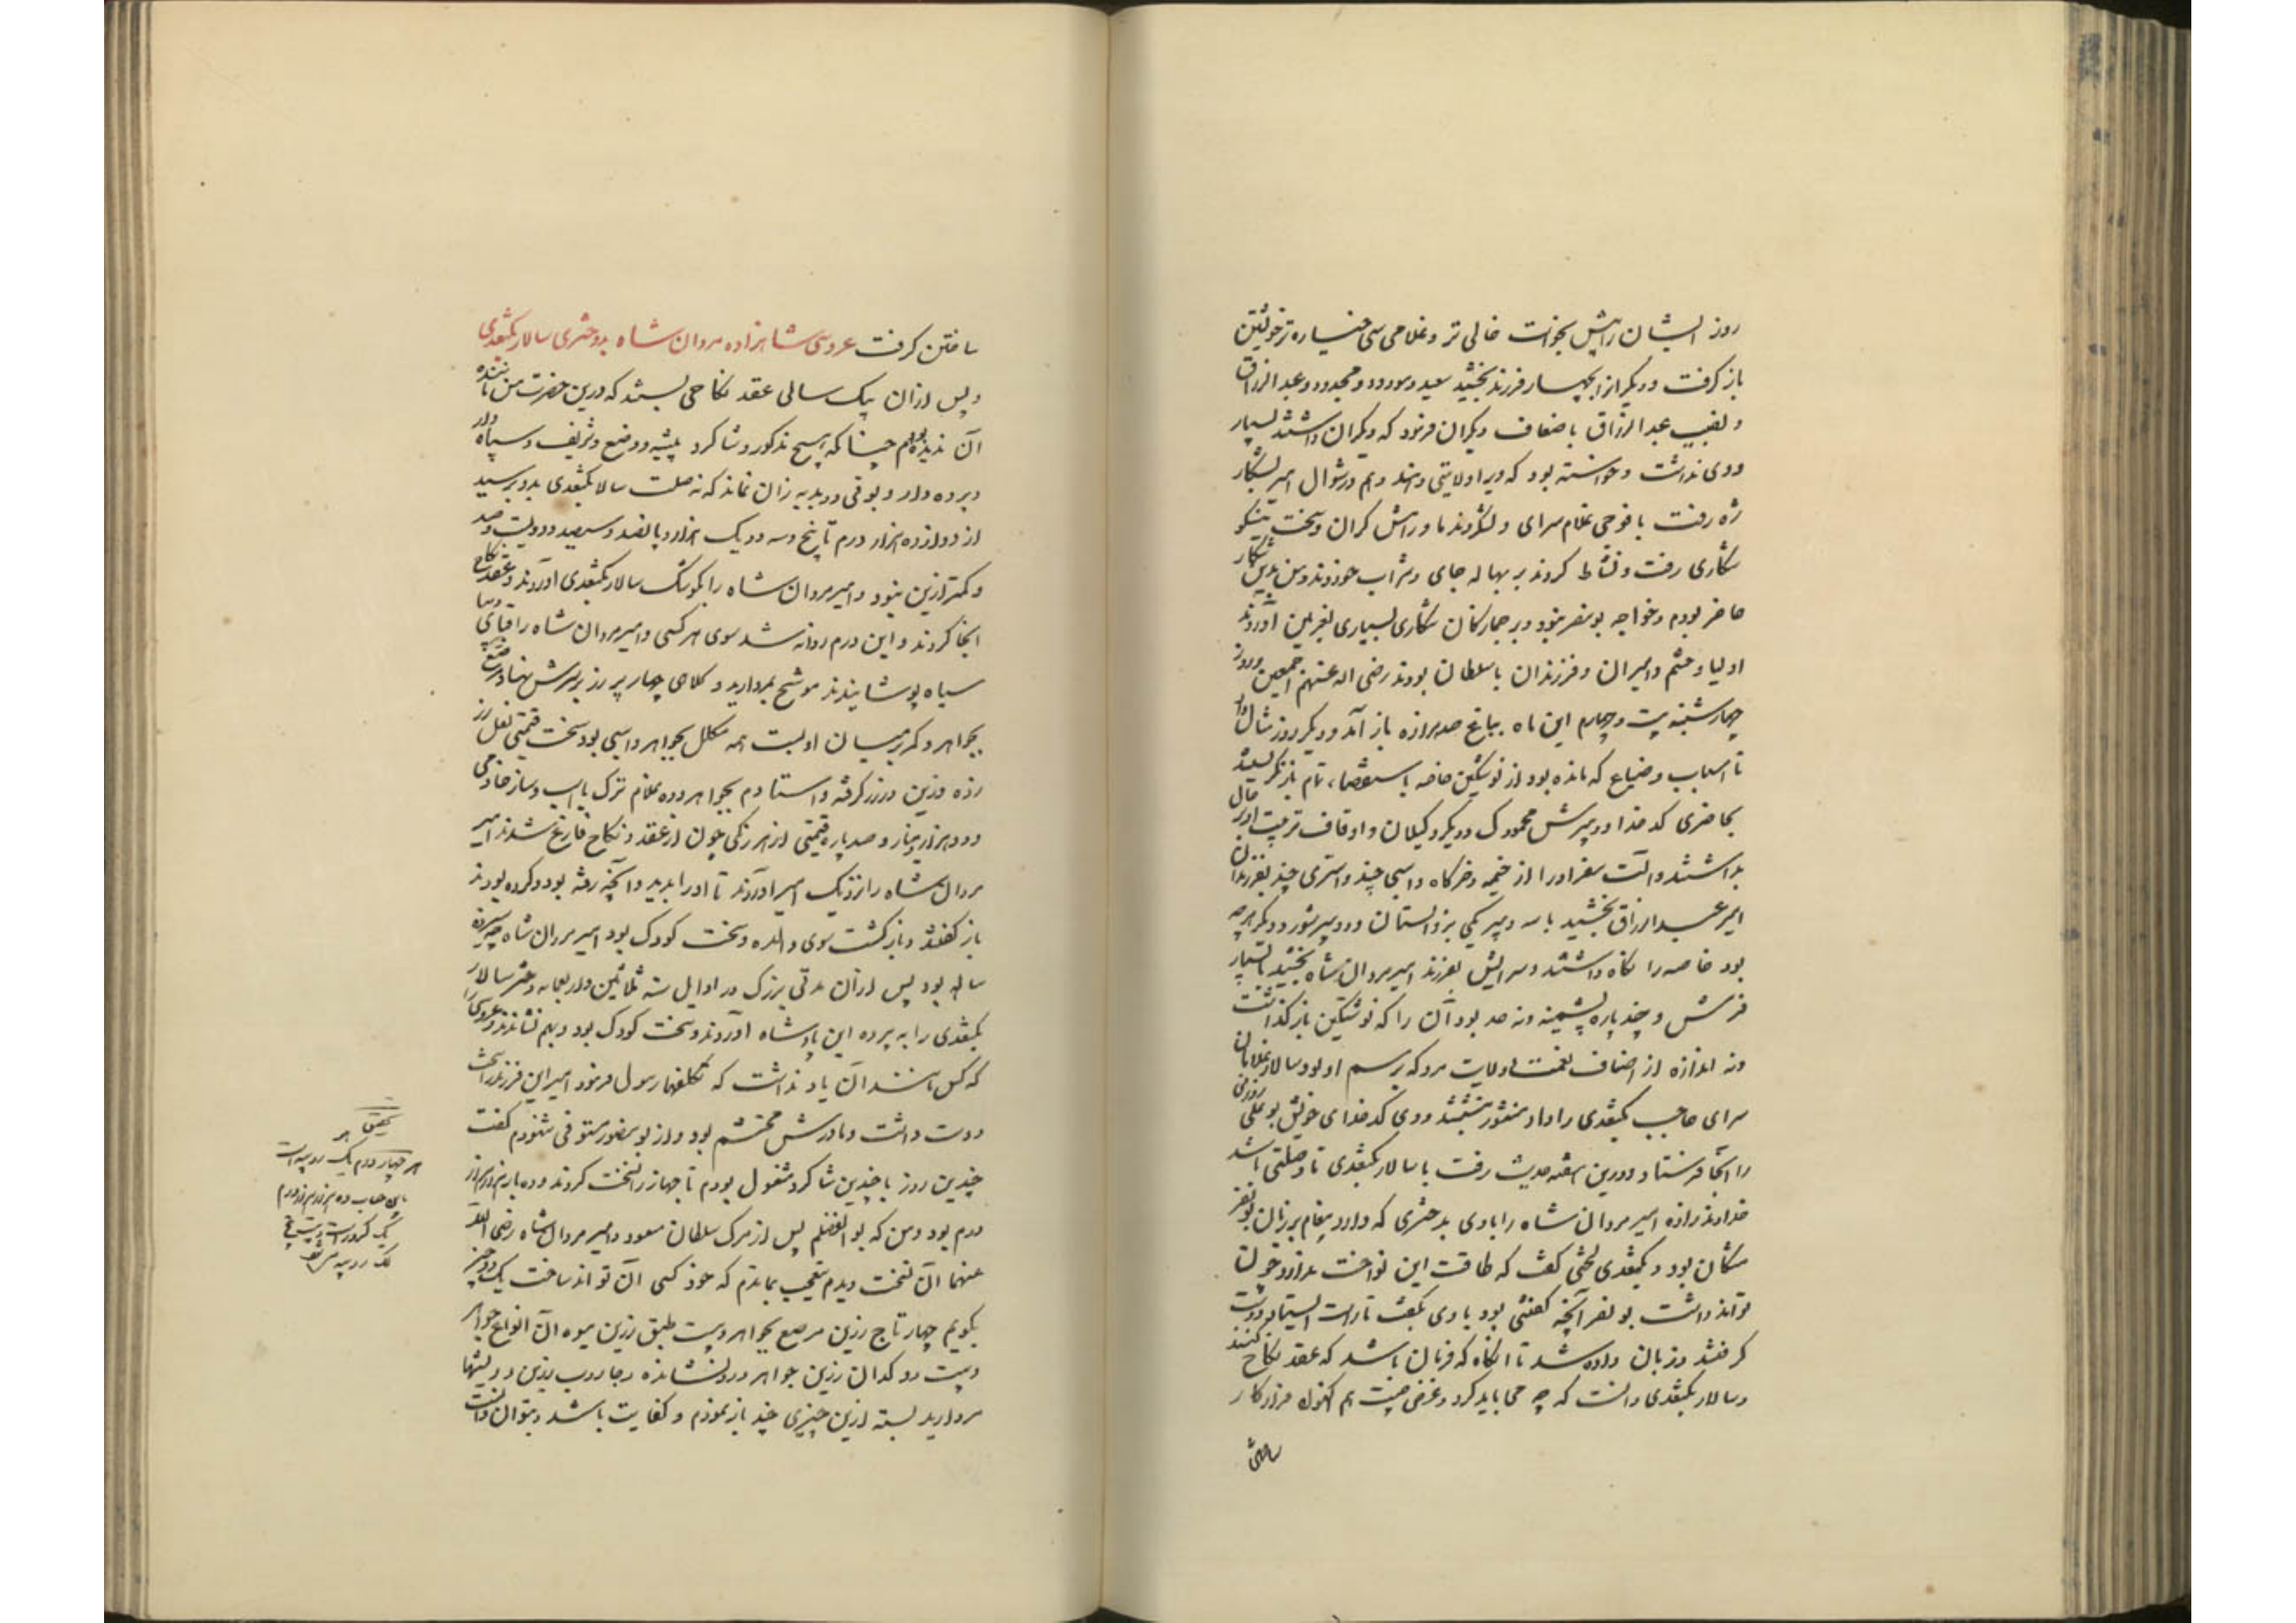 روز ایشان را پیش بخواست خالی تر و غلامی سی خیاره تر خویشتن
باز گرفت و دیگر از بچهار فرزند بخشید سعید و مودود و مجدود و عبد الرزاق
و نصیب عبد الرزاق باضعاف دیگران فرمود که دیگران داشتند بسیار
و وی نداشت و خواسته بود که ویرا ولایتی دهند و هم در شوال امیر بشکار
ژه رفت با فوجی غلام سرای و لشکر و ندما و رامش گران و سخت نیکو
شکاری رفت و نشاط کردند بر بهاله جای و شراب خوردند و من بدین شکار
حاضر بودم و خواجه بونصر نبود و بر جمازگان شکاری بسیاری بغزنین آوردند
اولیا و حشم و امیران و فرزندان با سلطان بودند رضی الله عنهم اجمعین و روز
چهارشنبه بیست و چهارم این ماه بباغ صد هزاره باز آمد و دیگر روز مثال داد
تا اسباب و ضیاع که مانده بود از نوشتکین خاصه باستقصاء تمام باز نگریستند
بحاضری کدخدا و دبیرش محمودک و دیگر وکیلان و اوقاف تربیت او بر حال
بداشتند و آلت سفر او را از خیمه و خرگاه و اسبی چند و اشتری چند بفرزندان
امیر عبد الرزاق بخشید با سه دیه یکی بزاولستان و دو بپرشور و دیگر هرچه
بود خاصه را نگاه داشتند و سرایش بفرزند امیر مردان شاه بخشید با بسیار
فرش و چند پاره سیمینه و نه حد بود آن را که نوشتکین باز گذاشت
و نه اندازه از اصناف نعمت و ولایت مرو که برسم او بود سالار غلامان
سرای حاجب بکتغدی را داد و منشور نبشتند و وی کدخدای خویش بو علی زوزنی
را آنجا فرستاد و درین هفته حدیث رفت با سالار بکتغدی تا وصلتی باشد
خداوند زاده امیر مردان شاه را با وی بدختری که دارد پیغام بر زبان بو نصر
مشکان بود و بکتغدی لختی گفت که طاقت این نواخت ندارد و چون
تواند داشت بو نصر آنچه گفتنی بود با وی بگفت تا راست ایستاد و دست
گرفتند و زبان داده شد تا آنگاه که فرمان باشد که عقد نکاح کنند
و سالار بکتغدی دانست که چه می باید کرد و غرض چیست هم اکنون فراز کار
ساختن
ساختن گرفت عروسی شاهزاده مردان شاه بدختری سالار بکتغدی
و پس از آن بیک سالی عقد نکاحی بستند که درین حضرت من ماننده
آن ندیده بودم چنانکه هیچ مذکور و شاگرد پیشه و وضیع و شریف و سپاه دار
و پرده دار و بوقی و دبدبه زن نماند که نه صلت سالار بکتغدی بدو برسید
از دوازده هزار درم تا پنج و سه و دو یک هزار و پانصد و سیصد و دویست و صد
و کمتر ازین نبود و امیر مردان شاه را بکوشک سالار بکتغدی آوردند و عقد نکاح
آنجا کردند و این درم روانه شد سوی هر کسی و امیر مردان شاه را قبای دیبا
سیاه پوشانیدند موشح بمروارید و کلاهی چهار پر زر بر سرش نهاد مرصع
بجواهر و کمر بر میان او بست همه مکلل بجواهر و اسبی بود سخت قیمتی نعل زر
زده و زین در زر گرفته و استادم بجواهر و ده غلام ترک با اسپ و ساز خادمی
و ده هزار دینار و صد پاره قیمتی از هر رنگی چون از عقد و نکاح فارغ شدند امیر
مردان شاه را نزدیک امیر آوردند تا او را بدید و آنچه رفته بود و کرده بودند
باز گفتند و باز گشت سوی والده و سخت کودک بود امیر مردان شاه چه سیزده
ساله بود پس از آن مدتی بزرگ در اوایل سنه ثلاثین و اربعمایه دختر سالار
بکتغدی را به پرده این پادشاه آوردند و سخت کودک بود و بهم نشاندند و عروسی را
که کس مانند آن یاد نداشت که تکلفها رسول فرمود امیر این فرزند را سخت
دوست داشت و مادرش محتشم بود و از بو منصور مستوفی شنودم گفت
چندین روز با چندین شاگرد مشغول بودم تا جهاز را نسخت کردند و ده بار هزار هزار
درم بود و من که بو الفضلم پس از مرگ سلطان مسعود و امیر مردان شاه رضی الله
عنهما آن نسخت دیدم بتعجب بماندم که خود کسی آن تواند ساخت یک دو چیز
بگویم چهار تاج زرین مرصع بجواهر و بیست طبق زرین میوه آن انواع جواهر
و بیست دوکدان زرین جواهر درو نشانده و جاروب زرین و ریشها
مروارید بسته ازین چیزی چند باز نمودم و کفایت باشد و بتوان دانست
تحقیق
هر چهار درم یک روپیه است
باین حساب ده هزار هزار درم
یک کرور است بیست پنج
لک روپیه